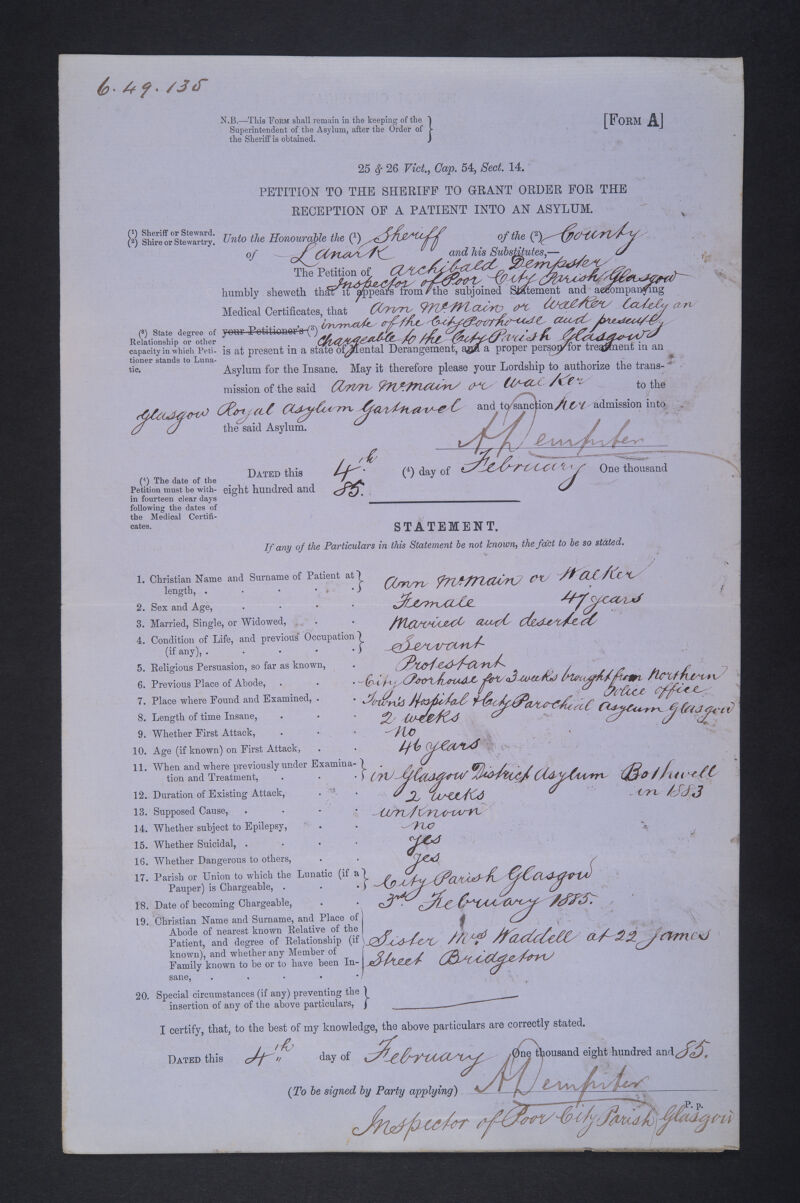 6.49.135
N.B.—This Form shall remain in the keeping of the
Superintendent of the Asylum, after the Order of
the Sheriff is obtained.
[Form A]
25 & 26 Vict., Cap. 54, Sect. 14.
PETITION TO THE SHERIFF TO GRANT ORDER FOR THE
RECEPTION OF A PATIENT INTO AN ASYLUM.
(1) Sheriff or Steward.
(2) Shire or Stewartry.
Unto the Honourable the (1) Sheriff of the (2) County
of Lanark and his Substitutes,—
The Petition of Archibald Dempster
Inspector of Poor City Parish Glasgow
humbly sheweth that it appears from the subjoined Statement and accompanying
Medical Certificates, that Ann McMain or Walker lately an
inmate of the City Poorhouse and presently
your Petitioner's (3)
chargeable to the City Parish Glasgow
(3) State degree of
Relationship or other
capacity in which Peti-
tioner stands to Luna-
tic.
is at present in a state of Mental Derangement, and a proper person for treatment in an
Asylum for the Insane. May it therefore please your Lordship to authorize the trans-
mission of the said Ann McMain or Walker to the
Glasgow Royal Asylum Gartnavel and to sanction her admission into
the said Asylum.
A Dempster
(4) The date of the
Petition must be with-
in fourteen clear days
following the dates of
the Medical Certifi-
cates.
Dated this 4th (4) day of February One thousand
eight hundred and 85.
STATEMENT.
If any of the Particulars in this Statement be not known, the fact to be so stated.
1. Christian Name and Surname of Patient at
length, . Ann McMain or Walker
2. Sex and Age, Female 47 years
3. Married, Single, or Widowed, Married and deserted
4. Condition of Life, and previous Occupation
(if any), . Servant
5. Religious Persuasion, so far as known, Protestant
6. Previous Place of Abode, City Poorhouse for 3 weeks brought from Northern
Police office
7. Place where Found and Examined, Town's Hospital & City Parochial Asylum Glasgow
8. Length of time Insane, 2 weeks
9. Whether First Attack, No
10. Age (if known) on First Attack, 46 years
11. When and where previously under Examina-
tion and Treatment, in Glasgow District Asylum Bothwell
in 1883
12. Duration of Existing Attack, 2 weeks
13. Supposed Cause, unknown
14. Whether subject to Epilepsy, no
15. Whether Suicidal, yes
16. Whether Dangerous to others, yes
17. Parish or Union to which the Lunatic (if a
Pauper) is Chargeable, City Parish Glasgow
18. Date of becoming Chargeable, 3rd February 1885.
19. Christian Name and Surname, and Place of
Abode of nearest known Relative of the
Patient, and degree of Relationship (if
known), and whether any Member of
Family known to be or to have been In-
sane,
Sister Mrs Waddell at 22 James
Street Bridgeton
20. Special circumstances (if any) preventing the
insertion of any of the above particulars,
I certify, that, to the best of my knowledge, the above particulars are correctly stated.
Dated this 4th day of February One thousand eight hundred and 85.
(To be signed by Party applying) A Dempster
P. p.
Inspector of Poor City Parish Glasgow